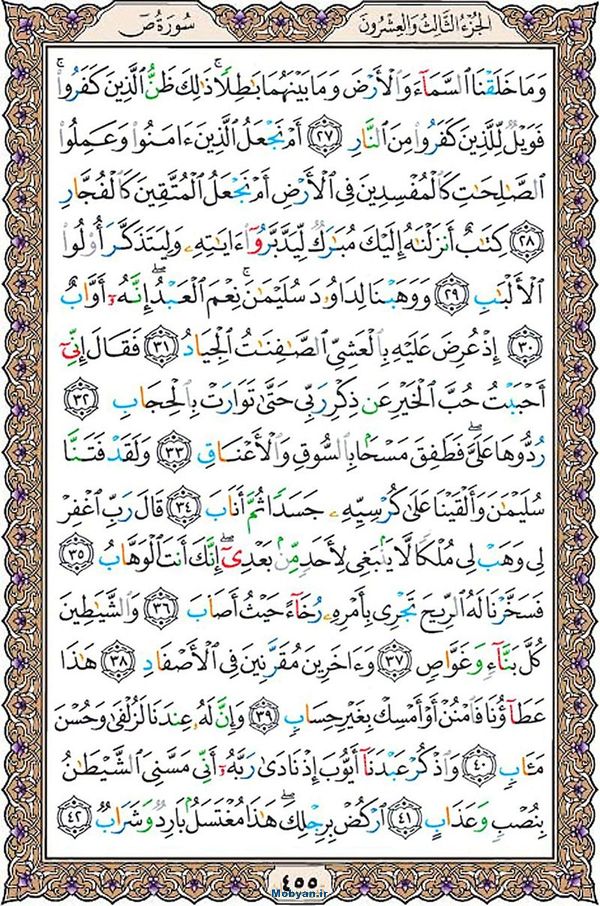 الجُزْءُ الثَّالِثُ وَالعِشْرُونَ
سُورَةُ صٓ
وَمَا خَلَقْنَا ٱلسَّمَآءَ وَٱلْأَرْضَ وَمَا بَيْنَهُمَا بَٰطِلًا ۚ ذَٰلِكَ ظَنُّ ٱلَّذِينَ كَفَرُوا۟ ۚ
فَوَيْلٌ لِّلَّذِينَ كَفَرُوا۟ مِنَ ٱلنَّارِ ٢٧ أَمْ نَجْعَلُ ٱلَّذِينَ ءَامَنُوا۟ وَعَمِلُوا۟
ٱلصَّٰلِحَٰتِ كَٱلْمُفْسِدِينَ فِى ٱلْأَرْضِ أَمْ نَجْعَلُ ٱلْمُتَّقِينَ كَٱلْفُجَّارِ
٢٨ كِتَٰبٌ أَنزَلْنَٰهُ إِلَيْكَ مُبَٰرَكٌ لِّيَدَّبَّرُوٓا۟ ءَايَٰتِهِۦ وَلِيَتَذَكَّرَ أُو۟لُوا۟
ٱلْأَلْبَٰبِ ٢٩ وَوَهَبْنَا لِدَاوُۥدَ سُلَيْمَٰنَ ۚ نِعْمَ ٱلْعَبْدُ ۖ إِنَّهُۥٓ أَوَّابٌ
٣٠ إِذْ عُرِضَ عَلَيْهِ بِٱلْعَشِىِّ ٱلصَّٰفِنَٰتُ ٱلْجِيَادُ ٣١ فَقَالَ إِنِّىٓ
أَحْبَبْتُ حُبَّ ٱلْخَيْرِ عَن ذِكْرِ رَبِّى حَتَّىٰ تَوَارَتْ بِٱلْحِجَابِ ٣٢
رُدُّوهَا عَلَىَّ ۖ فَطَفِقَ مَسْحًۢا بِٱلسُّوقِ وَٱلْأَعْنَاقِ ٣٣ وَلَقَدْ فَتَنَّا
سُلَيْمَٰنَ وَأَلْقَيْنَا عَلَىٰ كُرْسِيِّهِۦ جَسَدًا ثُمَّ أَنَابَ ٣٤ قَالَ رَبِّ ٱغْفِرْ
لِى وَهَبْ لِى مُلْكًا لَّا يَنۢبَغِى لِأَحَدٍ مِّنۢ بَعْدِىٓ ۖ إِنَّكَ أَنتَ ٱلْوَهَّابُ ٣٥
فَسَخَّرْنَا لَهُ ٱلرِّيحَ تَجْرِى بِأَمْرِهِۦ رُخَآءً حَيْثُ أَصَابَ ٣٦ وَٱلشَّيَٰطِينَ
كُلَّ بَنَّآءٍ وَغَوَّاصٍ ٣٧ وَءَاخَرِينَ مُقَرَّنِينَ فِى ٱلْأَصْفَادِ ٣٨ هَٰذَا
عَطَآؤُنَا فَٱمْنُنْ أَوْ أَمْسِكْ بِغَيْرِ حِسَابٍ ٣٩ وَإِنَّ لَهُۥ عِندَنَا لَزُلْفَىٰ وَحُسْنَ
مَـَٔابٍ ٤٠ وَٱذْكُرْ عَبْدَنَآ أَيُّوبَ إِذْ نَادَىٰ رَبَّهُۥٓ أَنِّى مَسَّنِىَ ٱلشَّيْطَٰنُ
بِنُصْبٍ وَعَذَابٍ ٤١ ٱرْكُضْ بِرِجْلِكَ ۖ هَٰذَا مُغْتَسَلٌۢ بَارِدٌ وَشَرَابٌ ٤٢
٤٥٥
Mobyan.ir